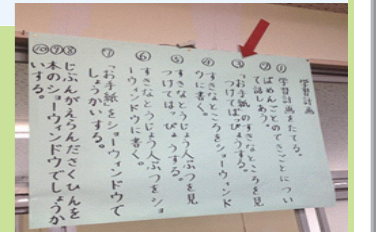 学習計画
① 学習計画をたてる。
② ばめんごとのできごとについ
て話しあう。
③ 「お手紙」のすきなところを見
つけてはっぴょうする。
④ すきなところをショーウィンド
ウに書く。
⑤ すきなとうじょう人ぶつを見
つけてはっぴょうする。
⑥ すきなとうじょう人ぶつをショ
ーウィンドウに書く。
⑦ 「お手紙」をショーウィンドウで
しょうかいする。
⑧ じぶんがえらんださくひんを
⑨ 本のショーウィンドウでしょうか
⑩ いする。